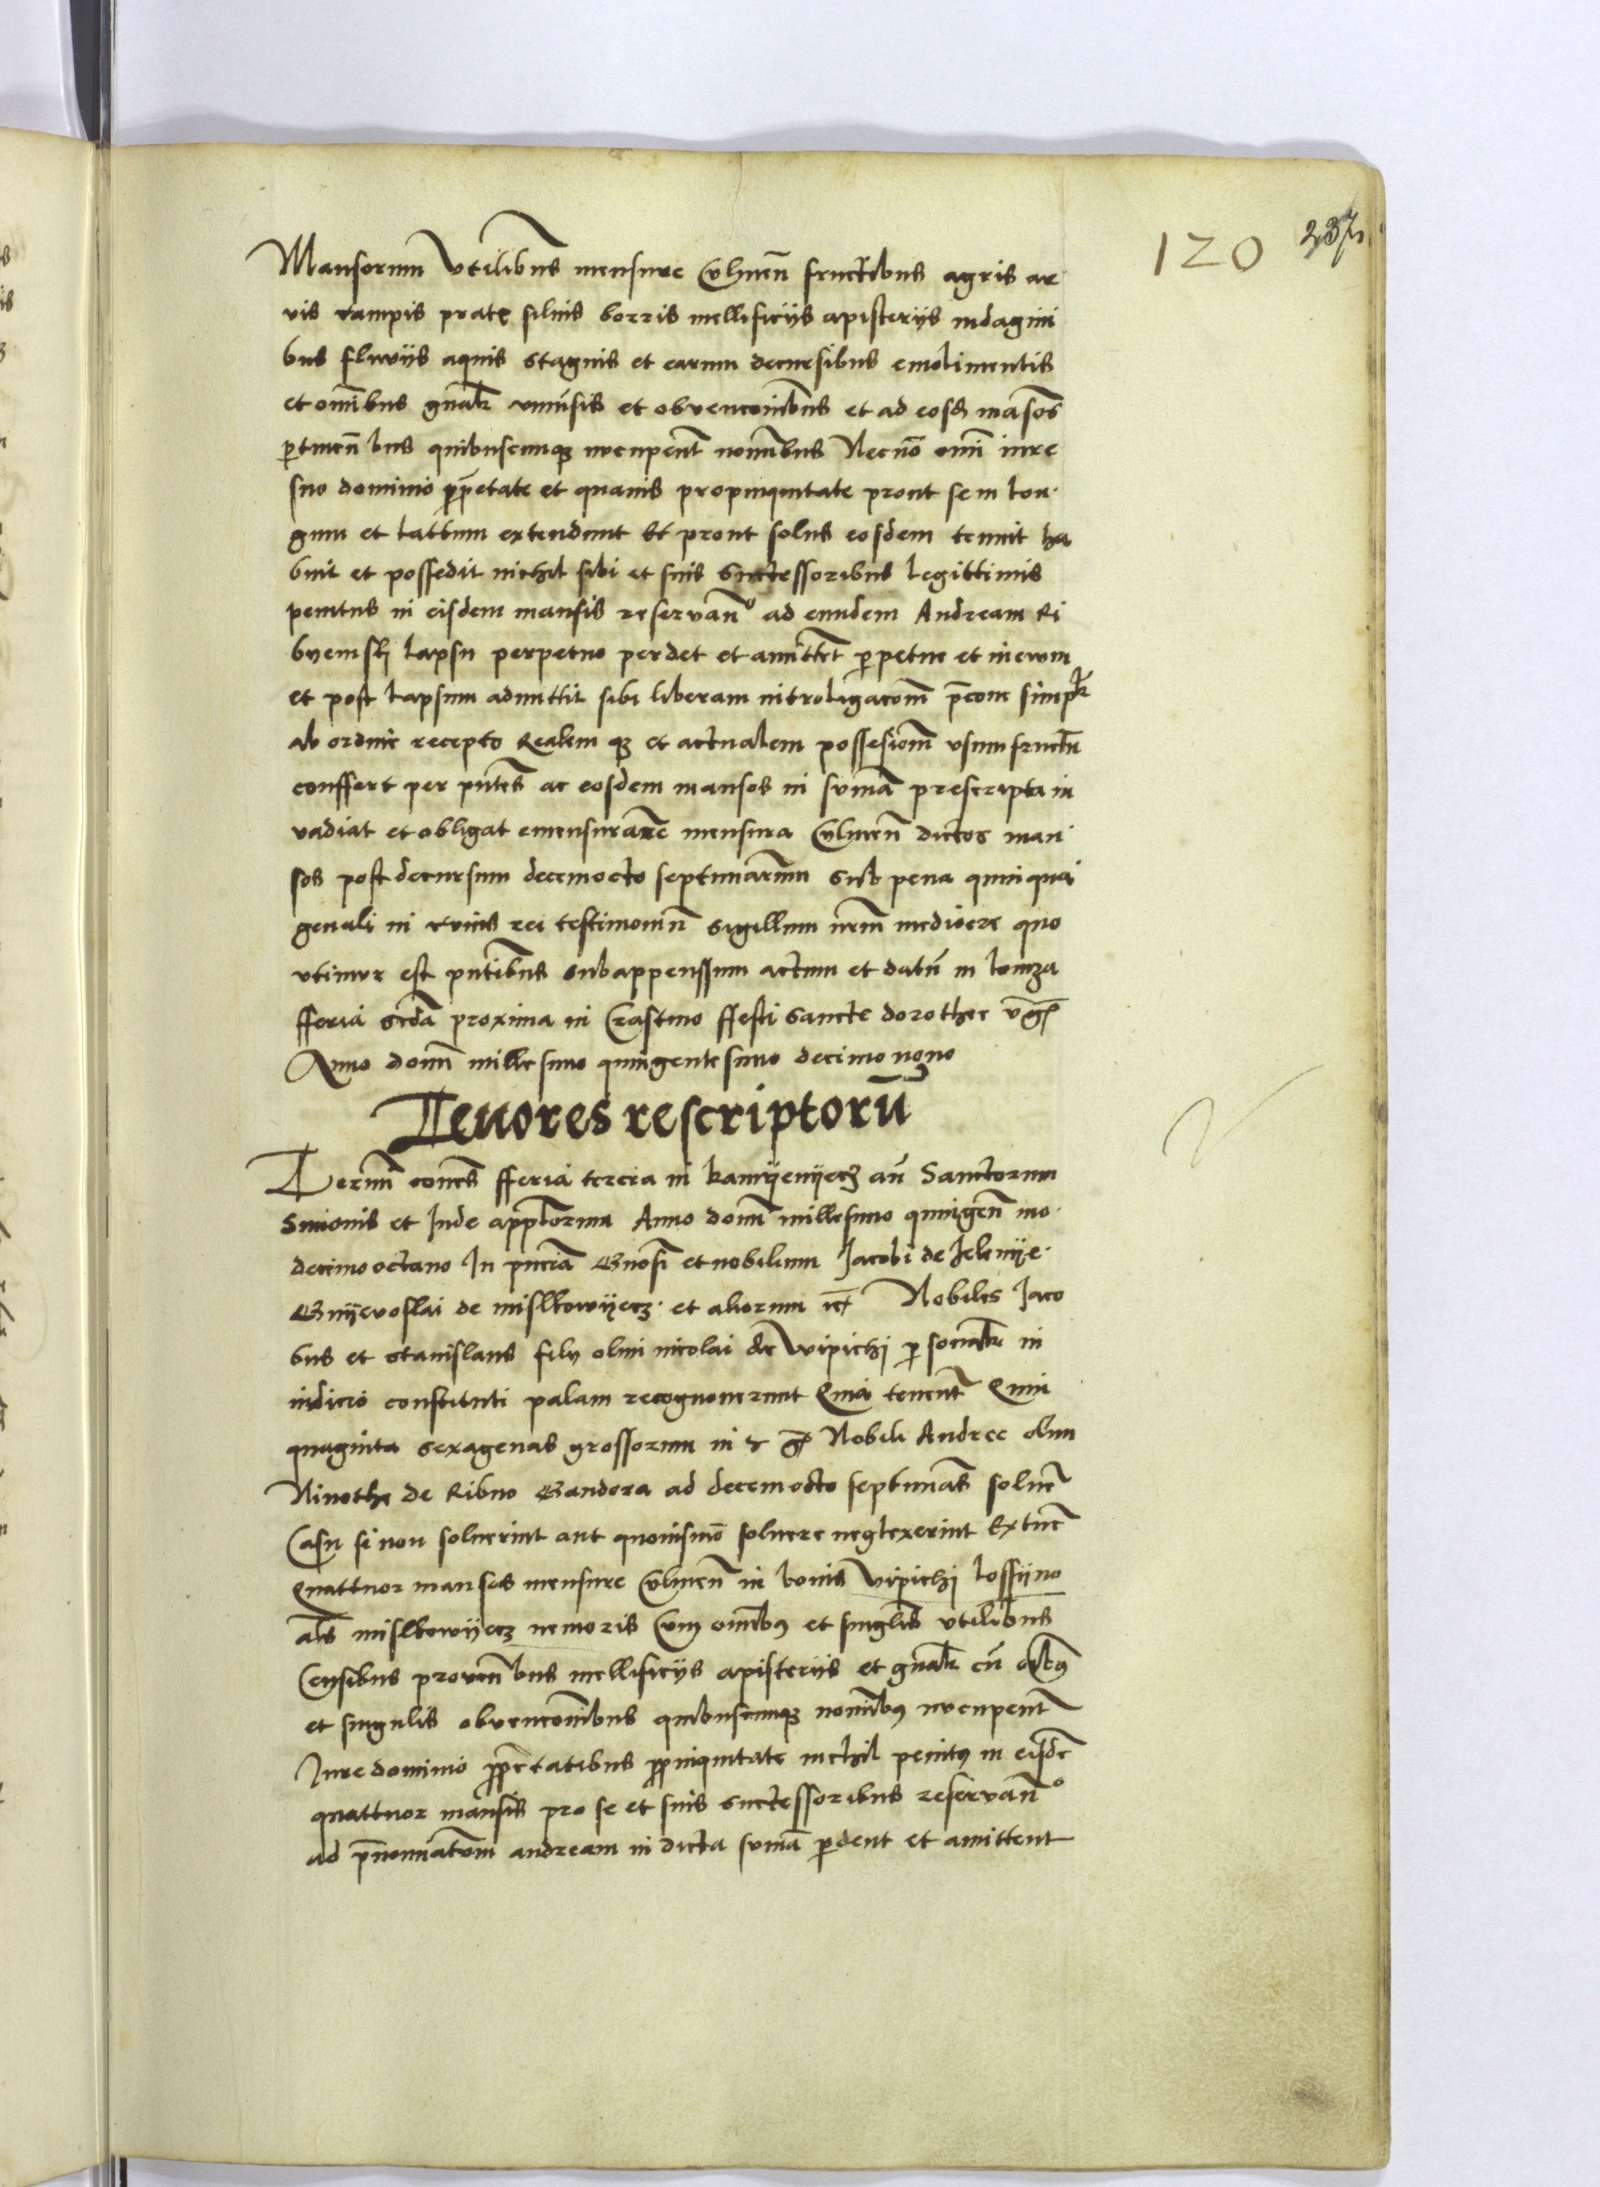 120 237
Mansorum vtilibus mensure Culmen̄ fructibus agris ar
vis campis prat? siluis borris mellificijs apisterijs indagini
bus fluvijs aquis stagnis et earum decursibus emolimentis
et om̄ibus gn̄alr vniu̇sis et obvencōnibus et ad eosd mansos
ptinen̄ bus quibuscumq nvcupent̄ nom̄ibus Necnō omī iure
suo dominio pp̄etate et quauis propinquitate prout se in lon
gum et lattum extendunt Et prout solus eosdem tenuit ha
buit et possedit nichil sibi et suis successoribus legittimis
penitus in eisdem mansis reservan̄o ad eundem Andream Ri
byensth lapsu perpetuo perdet et amittet ppetue et in ewm
et post lapsum admittit sibi liberam intro ligacōm p̄cone simplr
ab ordine recepto Realem q et actualem possesionm vsumfructū
conffert per pn̄tes ac eosdem mansos in sum̄a prescripta in
vadiat et obligat emensurare mensura Culmen̄ dictos man
sos post decursum decemocto septimanarum sub pena quinqua
genali in cvius rei testimoniū sigillum nr̄m mediocre quo
vtimvr est pn̄tibus subappenssum actum et datū in lomza
fferia scd̄a proxima in Crastino ffesti sancte dorothee vgs
Anno domī millesimo quingentesimo decimo nono
Tenores rescriptorū
Termī cones fferia tercia in kamyenyecz an̄ Sanctorum
Simonis et Jude appl̄orum Anno domī millesimo quingen̄ mo
decimo octauo In pn̄cia Gn̄osi et nobilium Jacobi de Jelenye
Gnyevoslai de mislkowyecz et aliorum ict Nobiles Jaco
bus et stanislaus filij olim nicolai de Wipichi p sonalr in
iudicio constituti palam recognouerunt Quia tenent̄ Quin
quaginta sexagenas grossorum in ? gs Nobili Andree olim
Ninothe de Ribno Gandora ad decem octo septimanas soluē
Casu si non soluerint aut quouismō soluere neglexerint Extūc
Quattuor manses mensure Culmen̄ in bonis Vipichi lossyno
als mislkowyecz nemoris Cum om̄ibus et singlis vtilibus
Censibus proven̄ bus mellificijs apisterijs et gn̄alr cū om̄ibus
et singulis obvencōnibus quibuscumq nom̄ibus nvcupent̄
Jure dominio pp̄etatibus ppinquitate nichil penitus in eisdē
quattuor mansis pro se et suis successoribus reservan̄o
ad p̄nominatvm andream in dicta sum̄a pdent et amittent